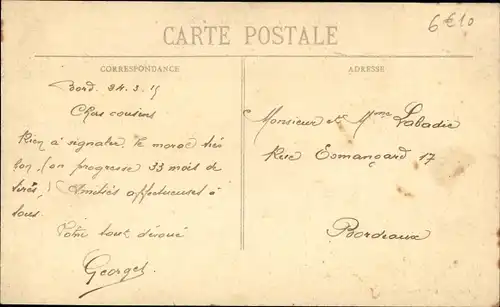 6€10
CARTE POSTALE
CORRESPONDANCE
ADRESSE
Bord. 24.3.15
Chers cousins
Rien à signaler, le moral très
bon (on progresse 33 mois de
!) Amitiés affectueuses à
tous.
Votre tout dévoué
Georges
Monsieur et Mme Labadie
Rue Esmangard 17
Bordeaux